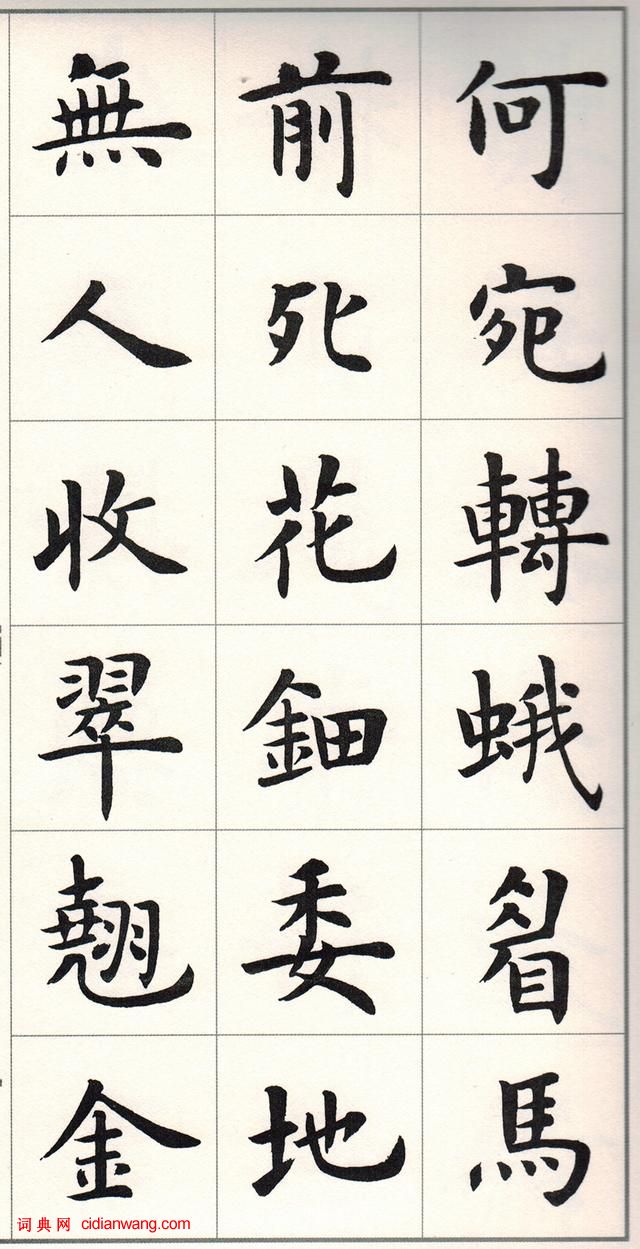 何宛轉蛾眉馬
前死花鈿委地
無人收翠翹金
词典网 cidianwang.com